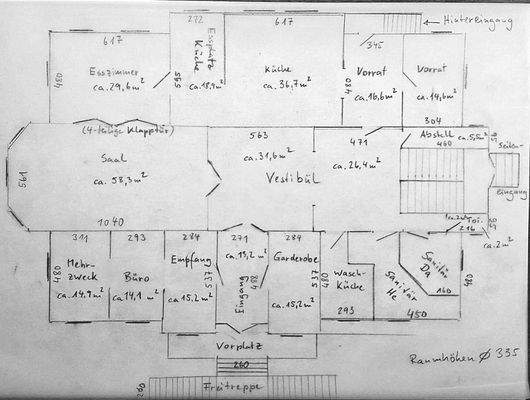 ← Hintereingang
617
272
617
345
Essplatz
Küche
Esszimmer
ca. 29,6 m²
480
595
ca. 18,9 m²
Küche
ca. 36,7 m²
480
Vorrat
ca. 16,6 m²
Vorrat
ca. 14,6 m²
304
(4-teilige Klapptür)
563
471
Abstell
460
ca. 5,5 m²
Saal
ca. 58,3 m²
561
1040
ca. 31,6 m²
Vestibül
ca. 26,4 m²
Seiten-
eingang
Toi.
216
ca. 2 m²
311
293
284
271
284
480
Mehr-
zweck
ca. 14,9 m²
Büro
ca. 14,1 m²
Empfang
ca. 15,2 m²
537
ca. 13,2 m²
Eingang
488
Garderobe
ca. 15,2 m²
537
480
Wasch-
Küche
293
Sanitär
He
Sanitär
Da
160
450
480
Vorplatz
260
Freitreppe
260
Raumhöhen Ø 335